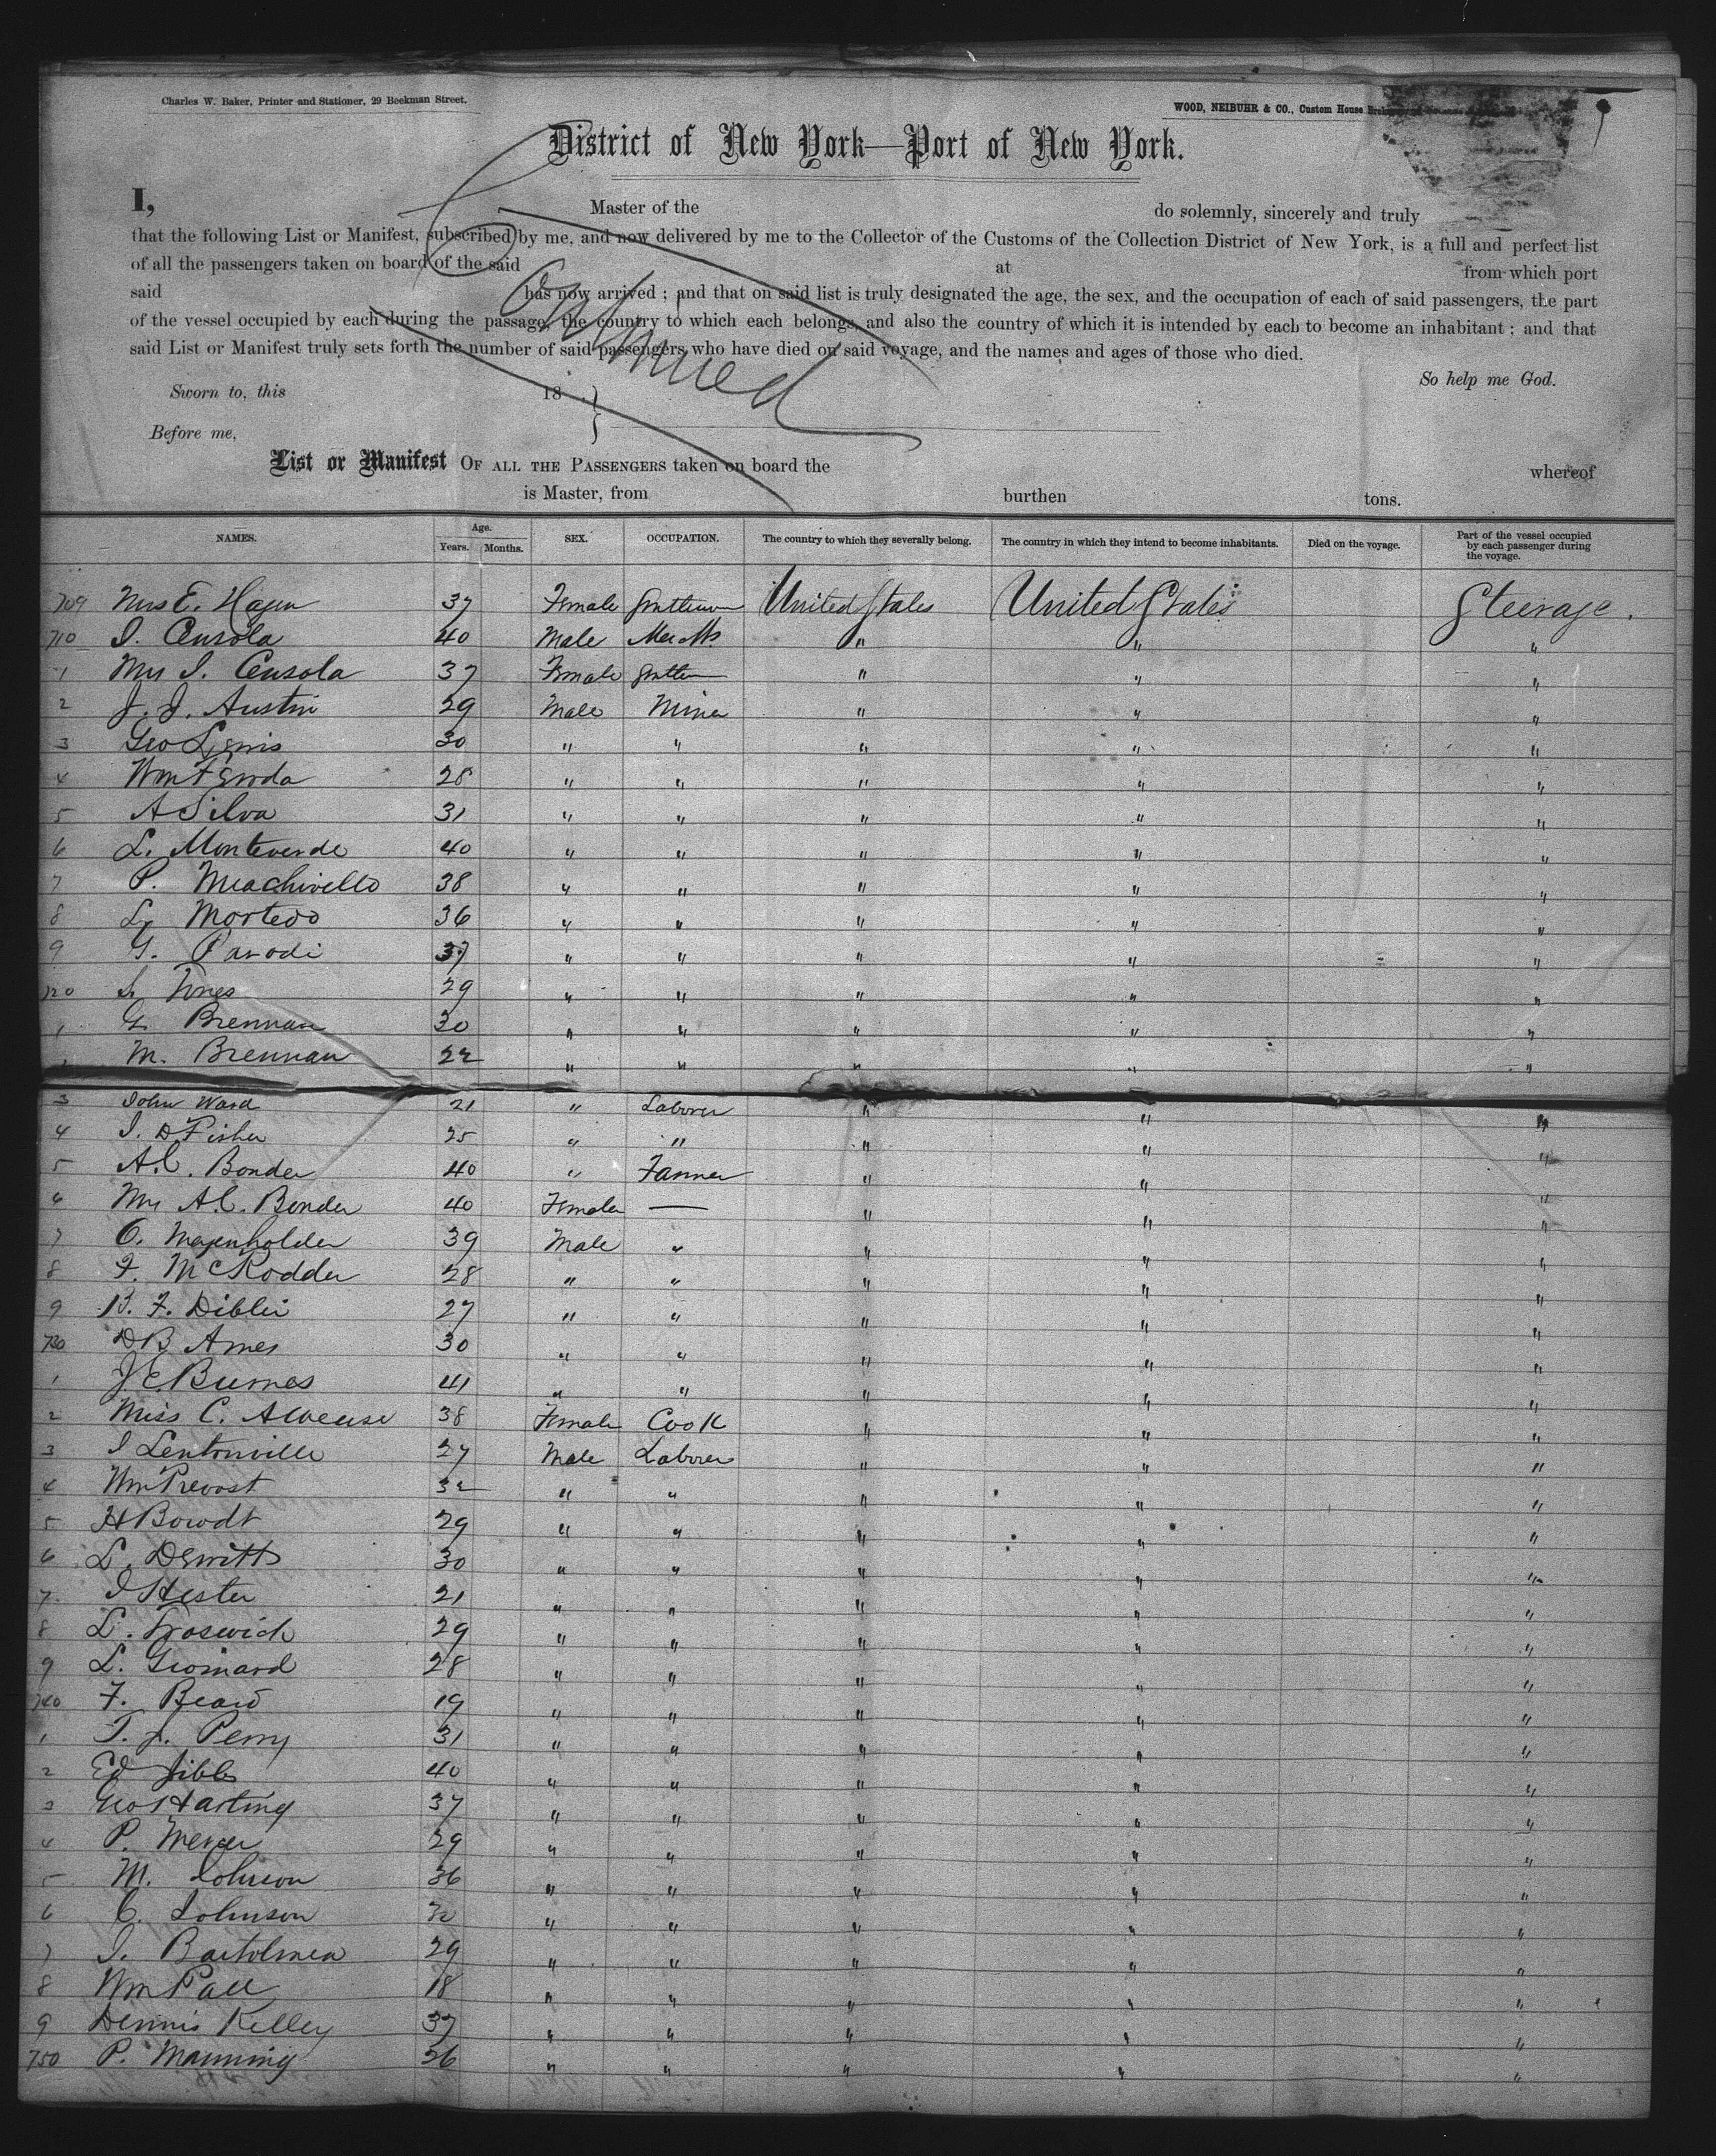 Charles W. Baker, Printer and Stationer, 29 Beekman Street.
WOOD, NEIBUHR & CO., Custom House
District of New York—Port of New York.
I, Master of the do solemnly, sincerely and truly
that the following List or Manifest, subscribed by me, and now delivered by me to the Collector of the Customs of the Collection District of New York, is a full and perfect list
of all the passengers taken on board of the said at from which port
said has now arrived; and that on said list is truly designated the age, the sex, and the occupation of each of said passengers, the part
of the vessel occupied by each during the passage, the country to which each belongs, and also the country of which it is intended by each to become an inhabitant; and that
said List or Manifest truly sets forth the number of said passengers who have died on said voyage, and the names and ages of those who died.
Continued
So help me God.
Sworn to, this 18
Before me,
List or Manifest OF ALL THE PASSENGERS taken on board the whereof
is Master, from burthen tons.
NAMES. Age. Years. Months. SEX. OCCUPATION. The country to which they severally belong. The country in which they intend to become inhabitants. Died on the voyage. Part of the vessel occupied by each passenger during the voyage.
709 Mrs E. Hagen 37 Female United States United States Steerage.
710 I. 40 Male " " "
1 Mrs I. 37 Female " " "
2 J. J. Austin 29 Male Miner " " "
3 Geo Lewis 30 " " " " "
4 Wm 28 " " " " "
5 A Silva 31 " " " " "
6 L. Monteverde 40 " " " " "
7 P. Meachivello 38 " " " " "
8 L. Mortedo 36 " " " " "
9 G. Parodi 37 " " " " "
720 29 " " " " "
1 G. Brennan 30 " " " " "
M. Brennan 22 " " " " "
3 John Ward 21 " Laborer " " "
4 I. D Fisher 25 " " " " "
5 A.C. Bonder 40 " Farmer " " "
6 Mrs A.C. Bonder 40 Female — " " "
7 O. Magenholder 39 Male " " " "
8 F. McRodder 28 " " " " "
9 B. F. Diblei 27 " " " " "
730 D B Ames 30 " " " " "
1 J E Burnes 41 " " " " "
2 Miss C. 38 Female Cook " " "
3 I Lentonville 27 Male Laborer " " "
4 Wm Prevost 32 " " " " "
5 H Bowdt 29 " " " " "
6 L. DeWitts 30 " " " " "
7 I Hester 21 " " " " "
8 L. Troswich 29 " " " " "
9 L. 28 " " " " "
740 F. Beard 19 " " " " "
1 T. J. Perry 31 " " " " "
2 Ed Jibbs 40 " " " " "
3 Geo Harting 37 " " " " "
4 P. 29 " " " " "
5 M. Johnson 36 " " " " "
6 C. Johnson " " " " "
7 I. Bartolmea 29 " " " " "
8 Wm Pall 18 " " " " "
9 Dennis Kelley 37 " " " " "
750 P. Manning 26 " " " " "